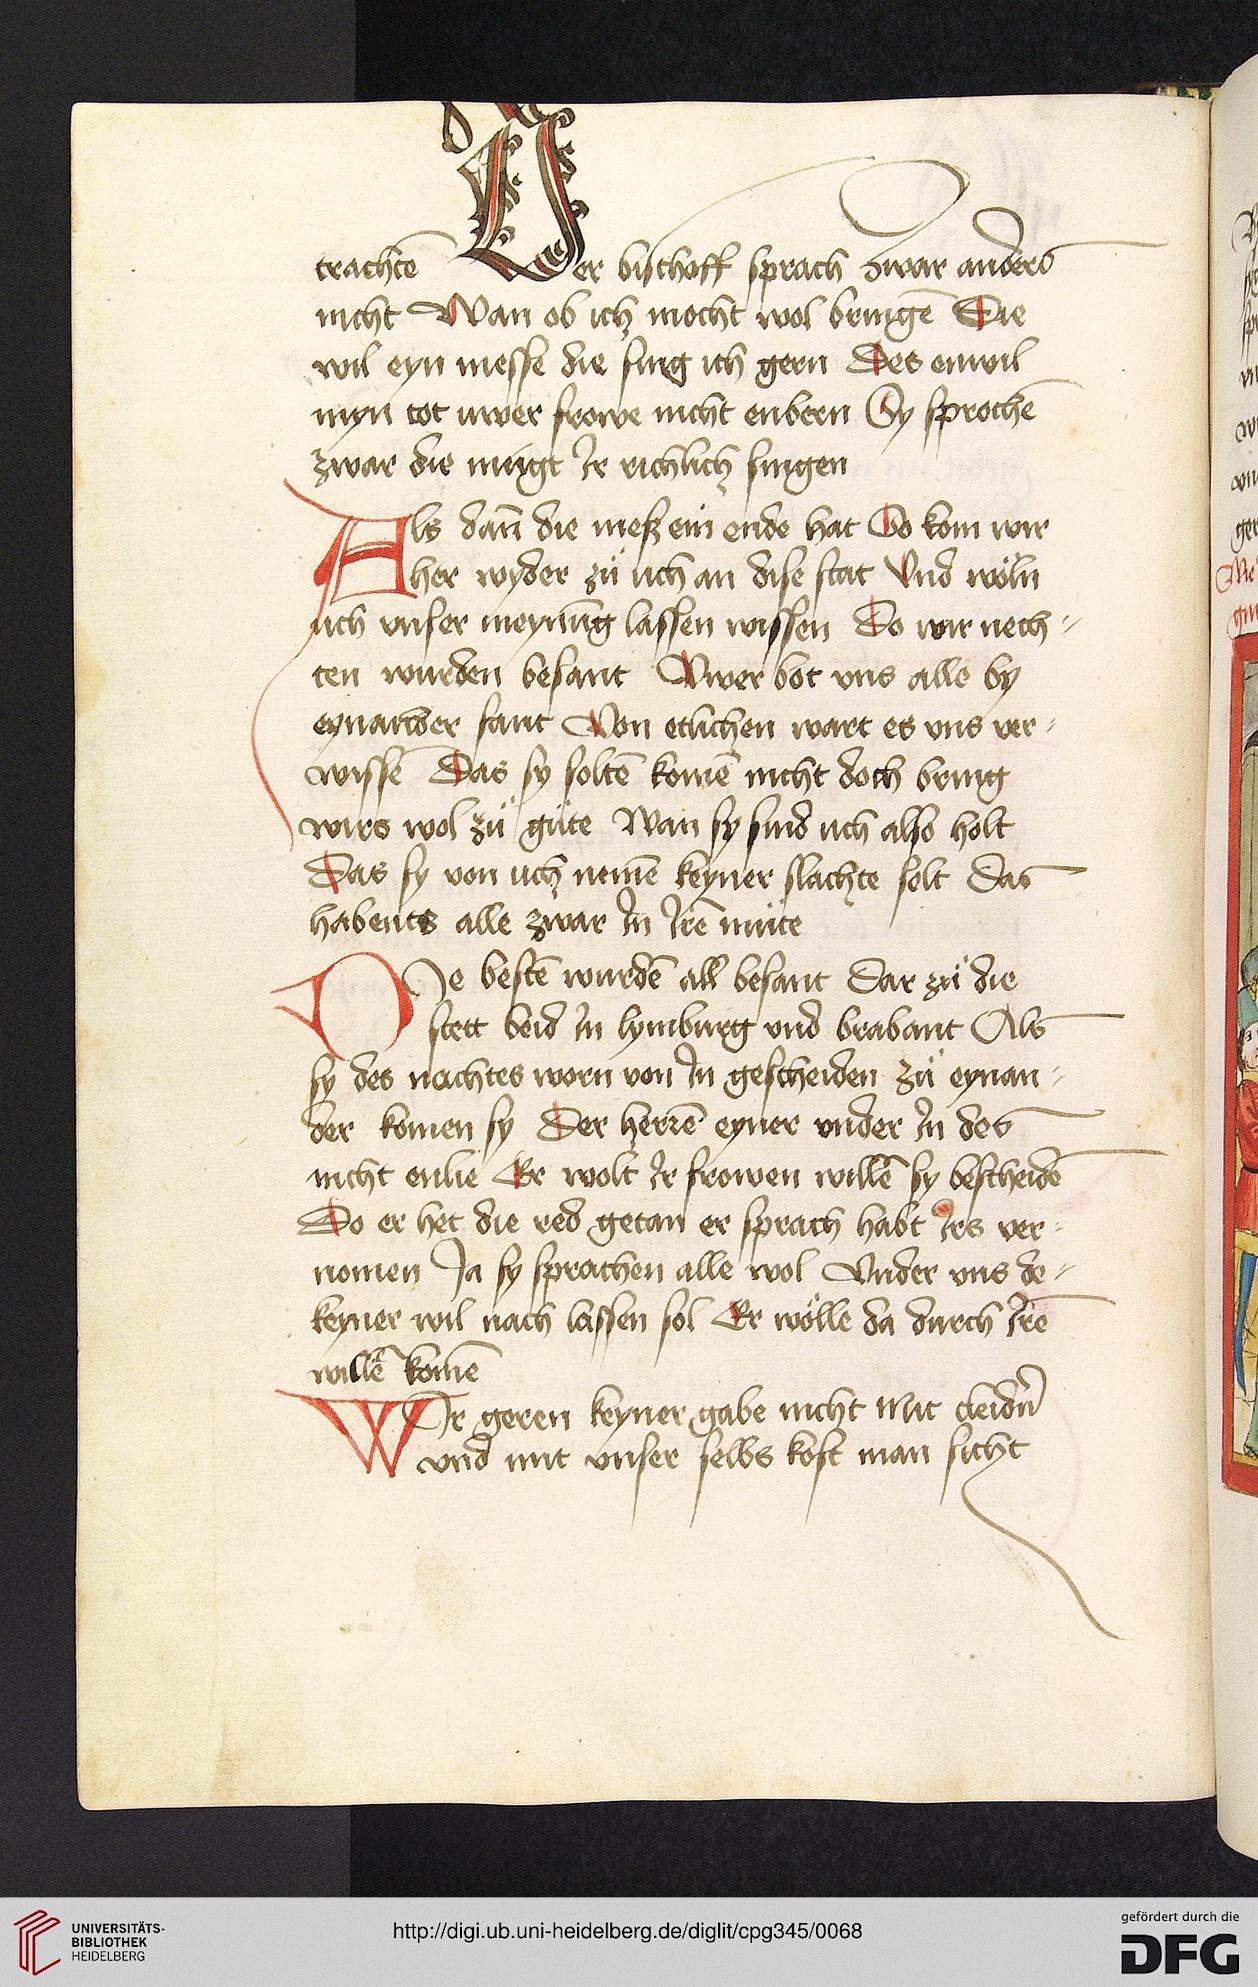 trachtē Der bischoff sprach zwar anders
nicht Wan ob ich mocht wol bringē Die
wil eyn messe die sing ich gern Des enwil
myn tot uwer frowe nicht enbern Sy sprochē
zwar die mùgt Ir richlich singen
Als dañ die meß ein ende hat So kom wir
her wyder zů uch an dise stat Vnd wöln
uch vnser meynūg lassen wissen Do wir nech-
ten wurden besant Vwer bot vns alle by
eynander fant Von etlichen wart es vns ver-
wissē Das sy soltē komē nicht doch bring
wirs wol zů gůte Wan sy sind uch also holt
Das sy von uch nemē keyner slachte solt Das
habents alle zwar In Irē můte
Die bestē wurdē all besant Dar zů die
stett beid In lymburg vnd brabant Als
sy des nachtes worn von In gescheiden Zů eynan-
der komen sy Der herrē eyner vnder In des
nicht enlie Er wolt Ir frowen willē sy bescheidē
Do er het die red getan er sprach habt Irs ver-
nomen Ja sy sprachen alle wol Vnder vns de-
keyner wil nach lassen sol Er wölle da durch Irē
willē komē
Wir geren keyner gabe nicht Mit cleidn̄
vnd mit vnser selbs kost man sicht
UNIVERSITÄTS-
BIBLIOTHEK
HEIDELBERG
http://digi.ub.uni-heidelberg.de/diglit/cpg345/0068
gefördert durch die
DFG